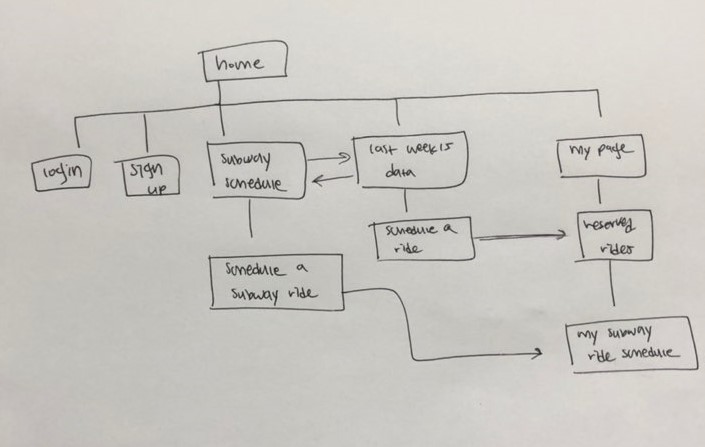 home
login
sign
up
subway
schedule
last week's
data
my page
schedule a
ride
reserved
rides
schedule a
subway ride
my subway
ride schedule